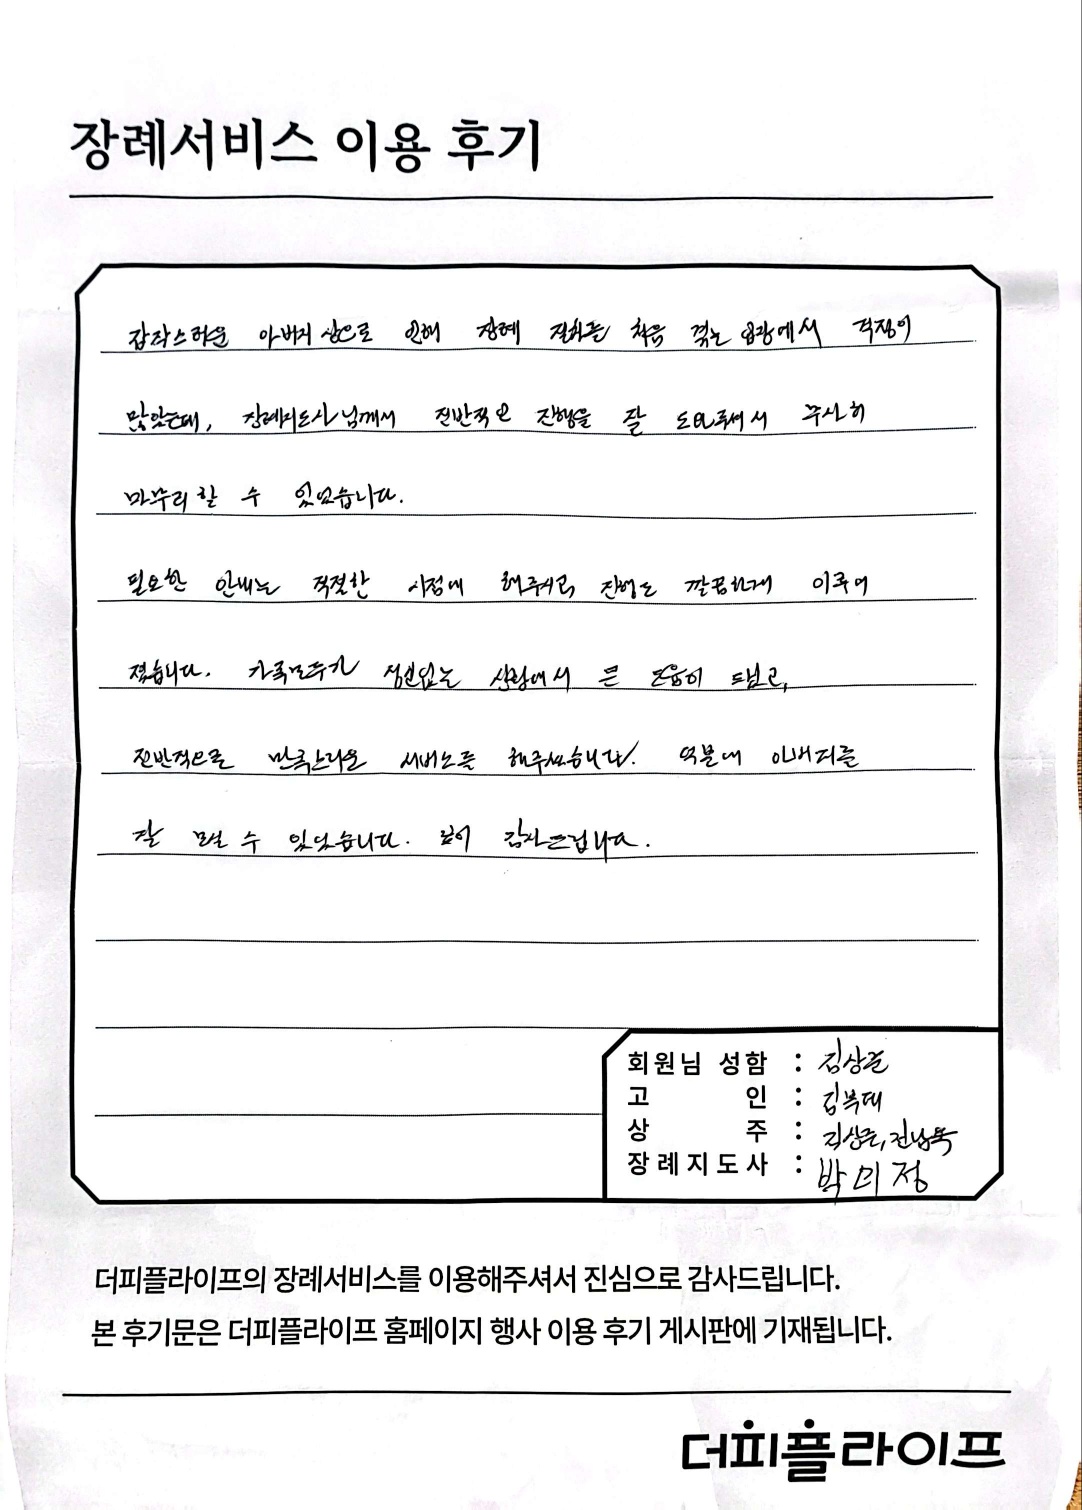 장례서비스 이용 후기
갑작스러운 아버지 상으로 인해 장례 절차를 처음 겪는 입장에서 걱정이
많았는데, 장례지도사님께서 전반적인 진행을 잘 도와주셔서 무사히
마무리할 수 있었습니다.
필요한 안내는 적절한 시점에 해주시고, 진행도 깔끔하게 이루어
졌습니다. 가족모두가 정신없는 상황에서 큰 도움이 되었고,
전반적으로 만족스러운 서비스를 해주셨습니다. 덕분에 아버지를
잘 모실 수 있었습니다. 깊이 감사드립니다.
회원님 성함 : 김상준
고 인 : 김복대
상 주 : 김상준,
장례지도사 : 박미정
더피플라이프의 장례서비스를 이용해주셔서 진심으로 감사드립니다.
본 후기문은 더피플라이프 홈페이지 행사 이용 후기 게시판에 기재됩니다.
더피플라이프